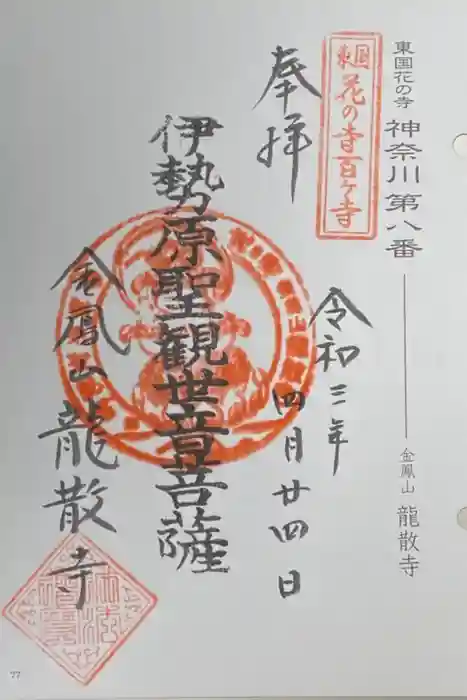 東国花の寺 神奈川第八番 金鳳山 龍散寺
東国
花の寺百ヶ寺
奉拝
令和三年
四月廿四日
伊勢原聖観世音菩薩
金鳳山 龍散寺
77